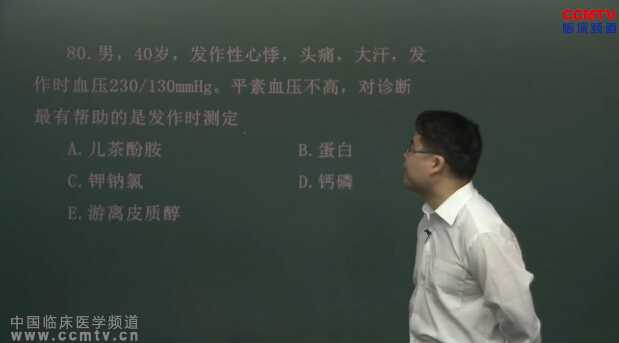 CCMTV
临床频道
80.男，40岁，发作性心悸，头痛，大汗，发
作时血压230/130mmHg。平素血压不高，对诊断
最有帮助的是发作时测定
A.儿茶酚胺 B.蛋白
C.钾钠氯 D.钙磷
E.游离皮质醇
中国临床医学频道
www.ccmtv.cn